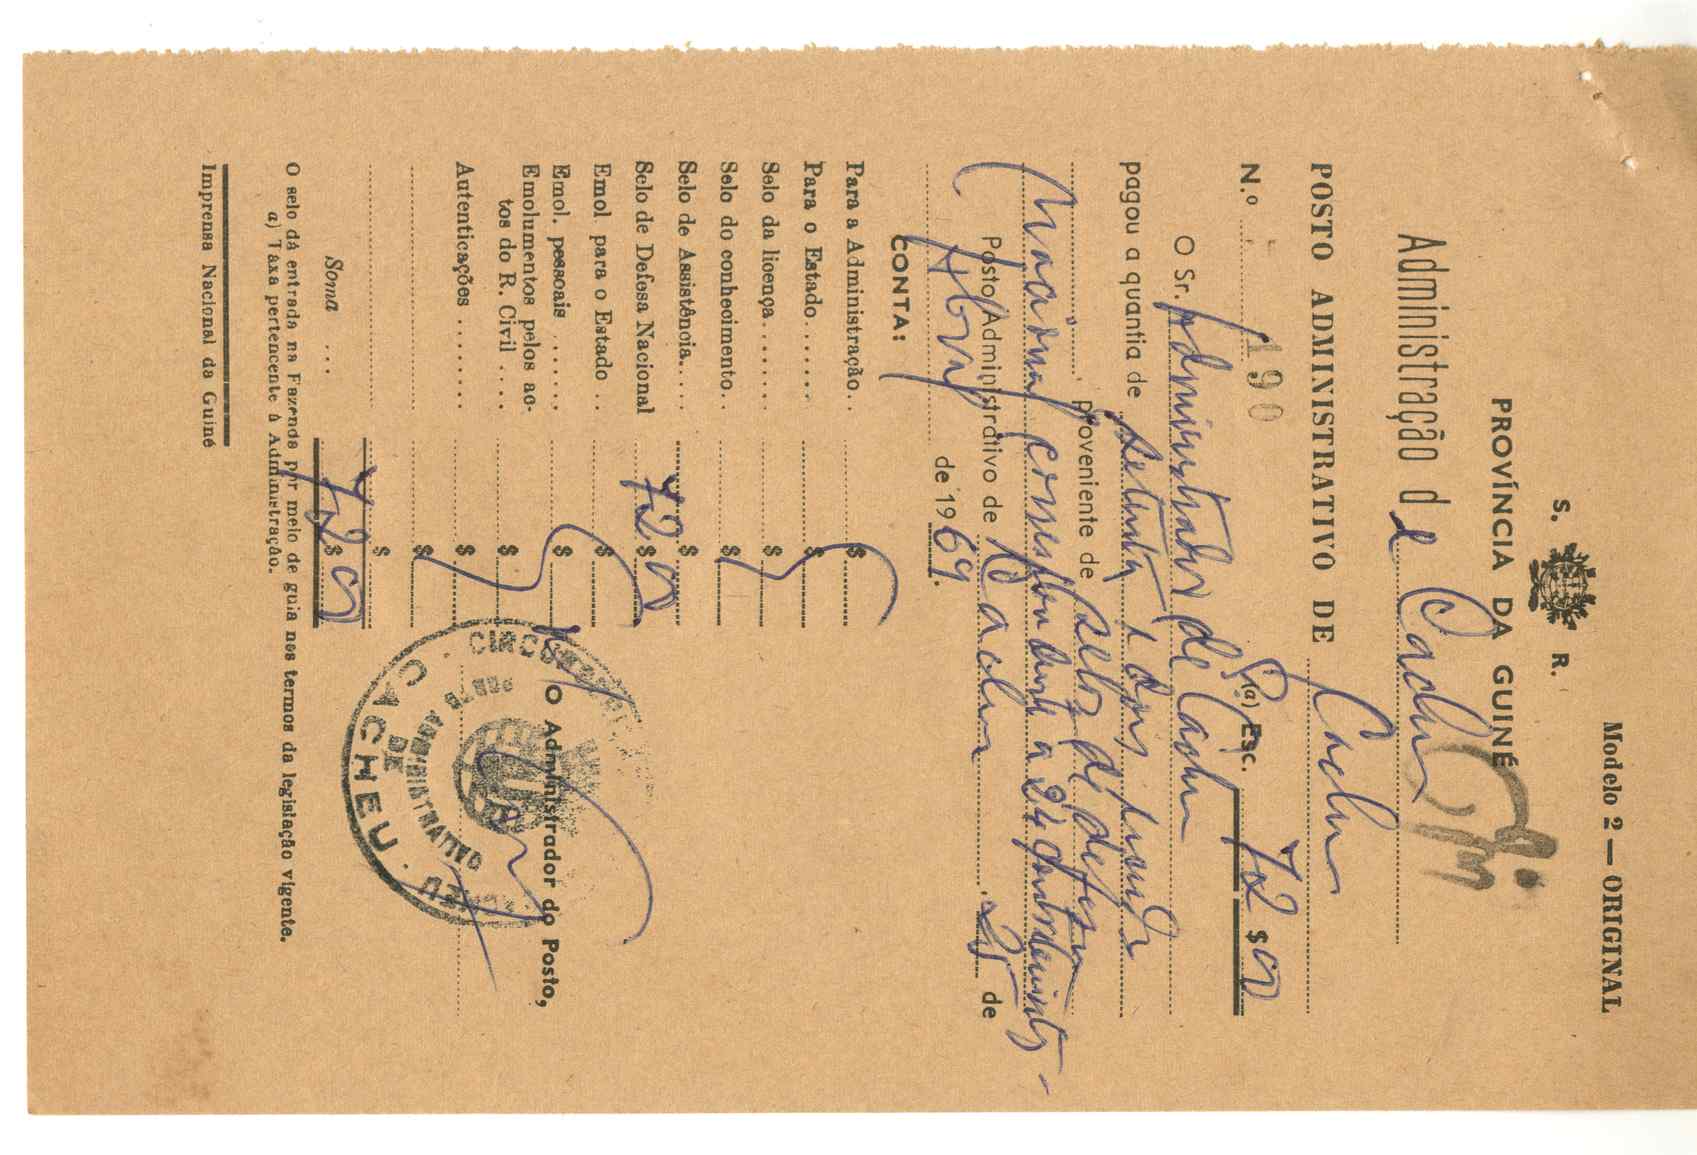 Modelo 2 — ORIGINAL
S. R.
PROVÍNCIA DA GUINÉ
Administração de Cacheu
POSTO ADMINISTRATIVO DE Cacheu
N.º 190 (a) Esc. 72$00
O Sr. Administrador de Cacheu
pagou a quantia de setenta e dois escudos
proveniente de selos de defesa
Nacional correspondente a 24 conhecimentos-
Posto Administrativo de Cacheu, 25 de
Abril de 1969.
CONTA:
Para a Administração.. $
Para o Estado....... $
Selo da licença....... $
Selo do conhecimento.. $
Selo de Assistência.... $
Selo de Defesa Nacional 72$00
Emol para o Estado .. $
Emol. pessoais ...... $
Emolumentos pelos ac-
tos do R. Civil .... $
Autenticações ...... $
$
$
Soma ... 72$00
O Administrador do Posto,
CACHEU
POSTO ADMINISTRATIVO
DE
O selo dá entrada na Fazenda por meio de guia nos termos da legislação vigente.
a) Taxa pertencente à Administração.
Imprensa Nacional da Guiné